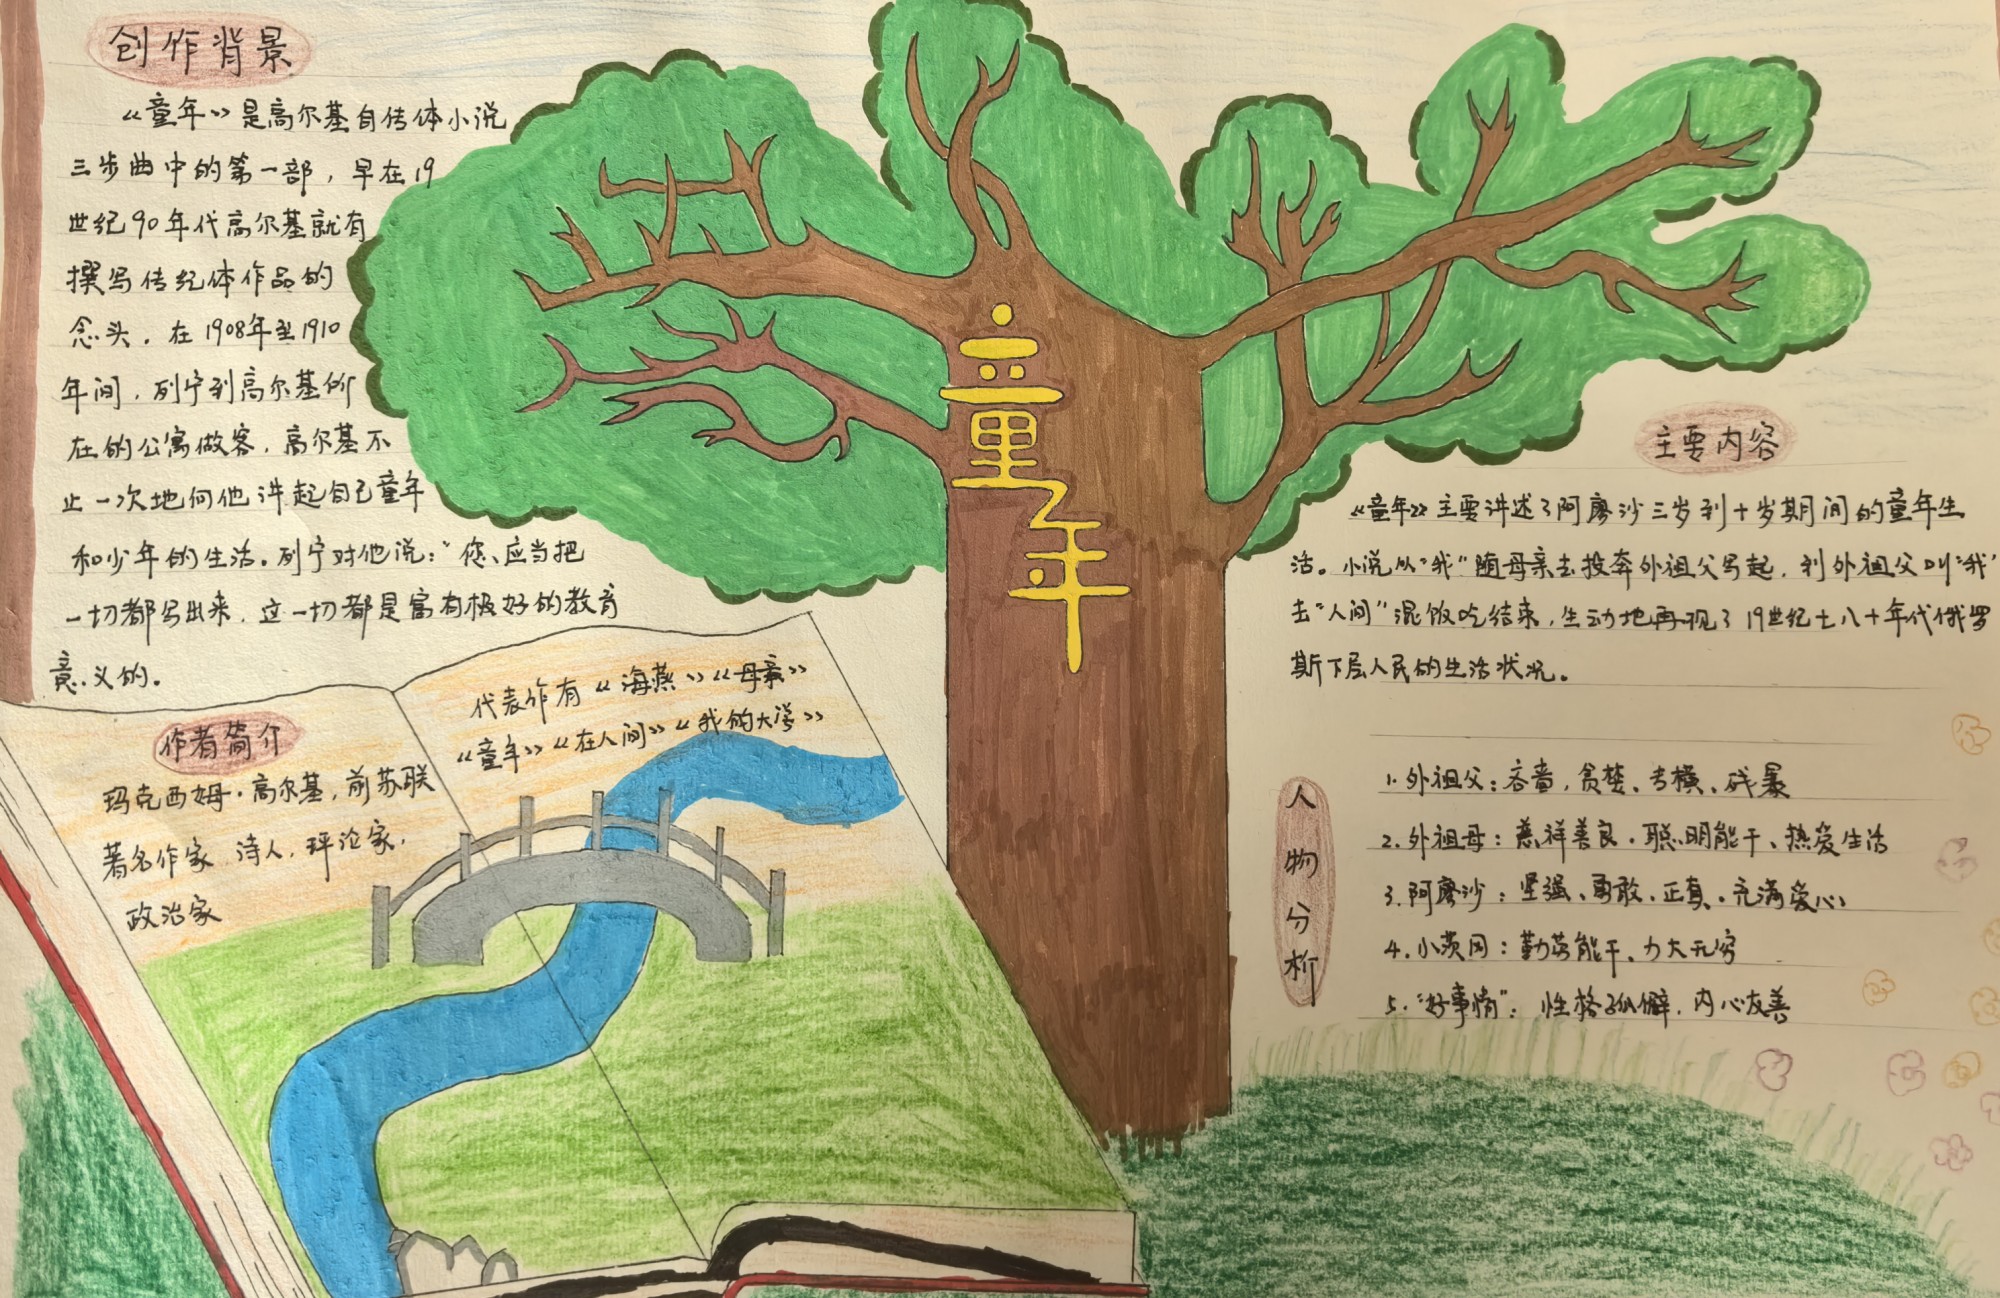 创作背景
《童年》是高尔基自传体小说
三步曲中的第一部，早在19
世纪90年代高尔基就有
撰写传纪体作品的
念头。在1908年至1910
年间，列宁到高尔基所
在的公寓做客，高尔基不
止一次地向他讲起自己童年
和少年的生活。列宁对他说：“您、应当把
一切都写出来，这一切都是富有极好的教育
意义的。
作者简介
玛克西姆·高尔基，前苏联
著名作家、诗人，评论家，
政治家
代表作有《海燕》《母亲》
《童年》《在人间》《我的大学》
童年
主要内容
《童年》主要讲述了阿廖沙三岁到十岁期间的童年生
活。小说从“我”随母亲去投奔外祖父写起，到外祖父叫“我”
去“人间”混饭吃结束，生动地再现了19世纪七八十年代俄罗
斯下层人民的生活状况。
人物分析
1.外祖父：吝啬，贪婪、专横、残暴
2.外祖母：慈祥善良，聪明能干、热爱生活
3.阿廖沙：坚强、勇敢、正直、充满爱心
4.小茨冈：勤劳能干、力大无穷
5.“好事情”：性格孤僻，内心友善